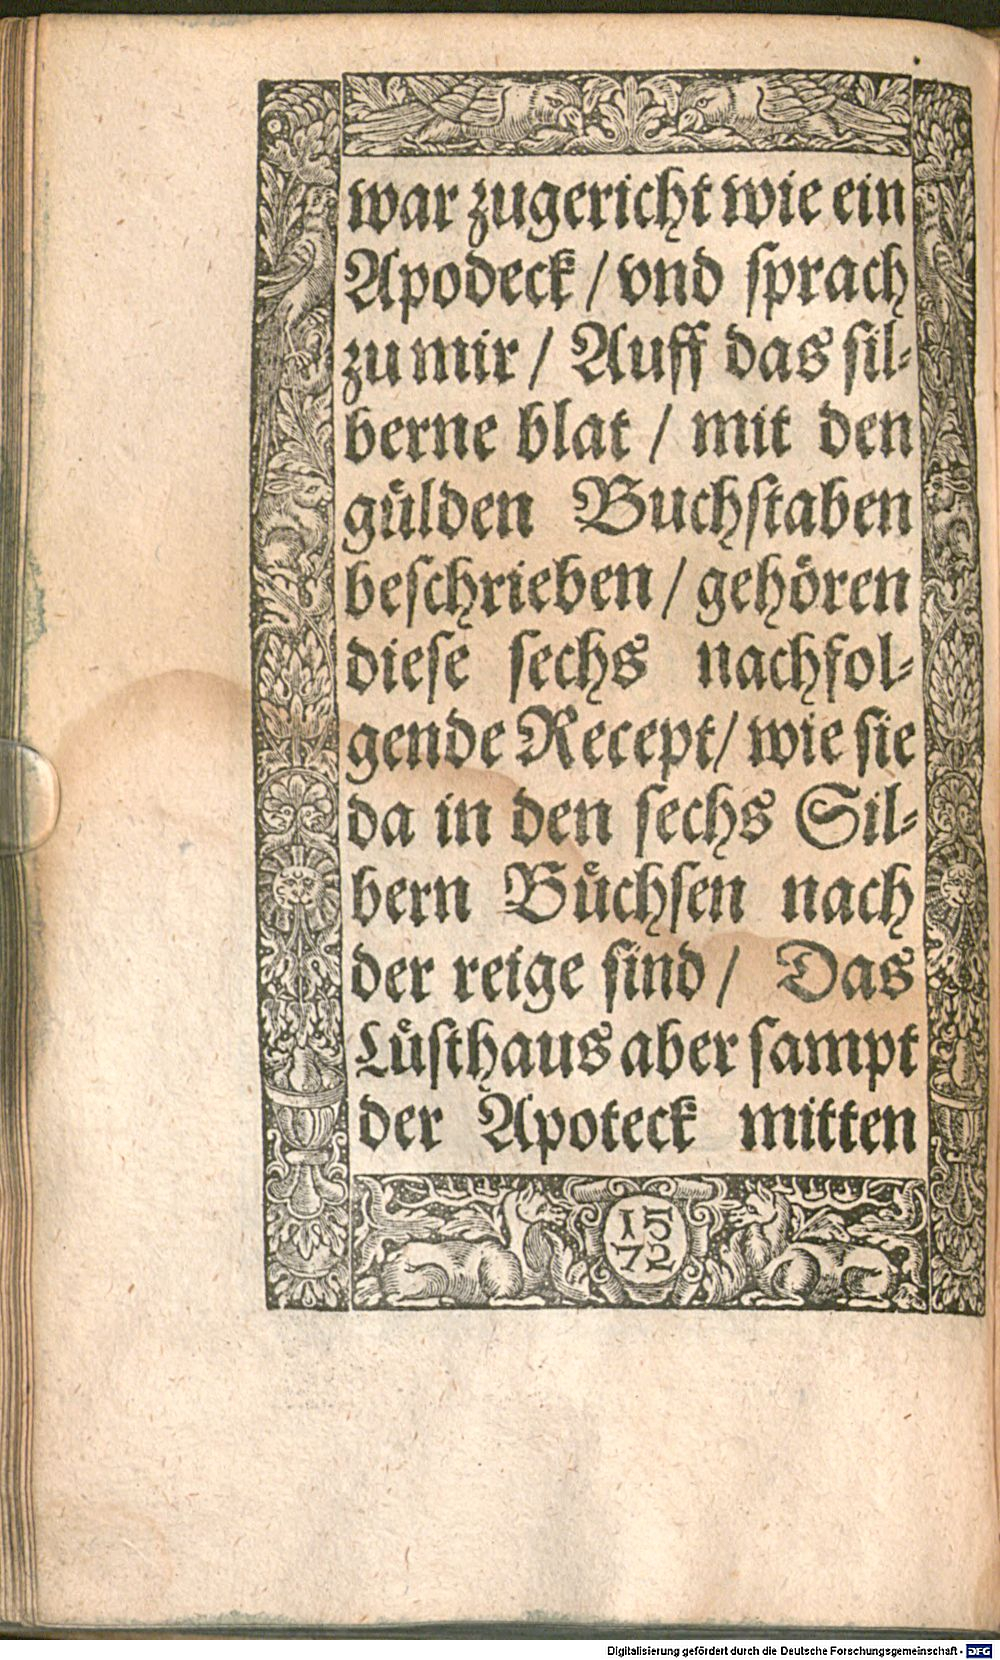 war zugericht wie ein
Apodeck / vnd sprach
zu mir / Auff das sil⸗
berne blat / mit den
guͤlden Buchstaben
beschrieben / gehoͤren
diese sechs nachfol⸗
gende Recept / wie sie
da in den sechs Sil⸗
bern Buͤchsen nach
der reige sind / Das
Luͤsthaus aber sampt
der Apoteck mitten
15
72
Digitalisierung gefördert durch die Deutsche Forschungsgemeinschaft - DFG